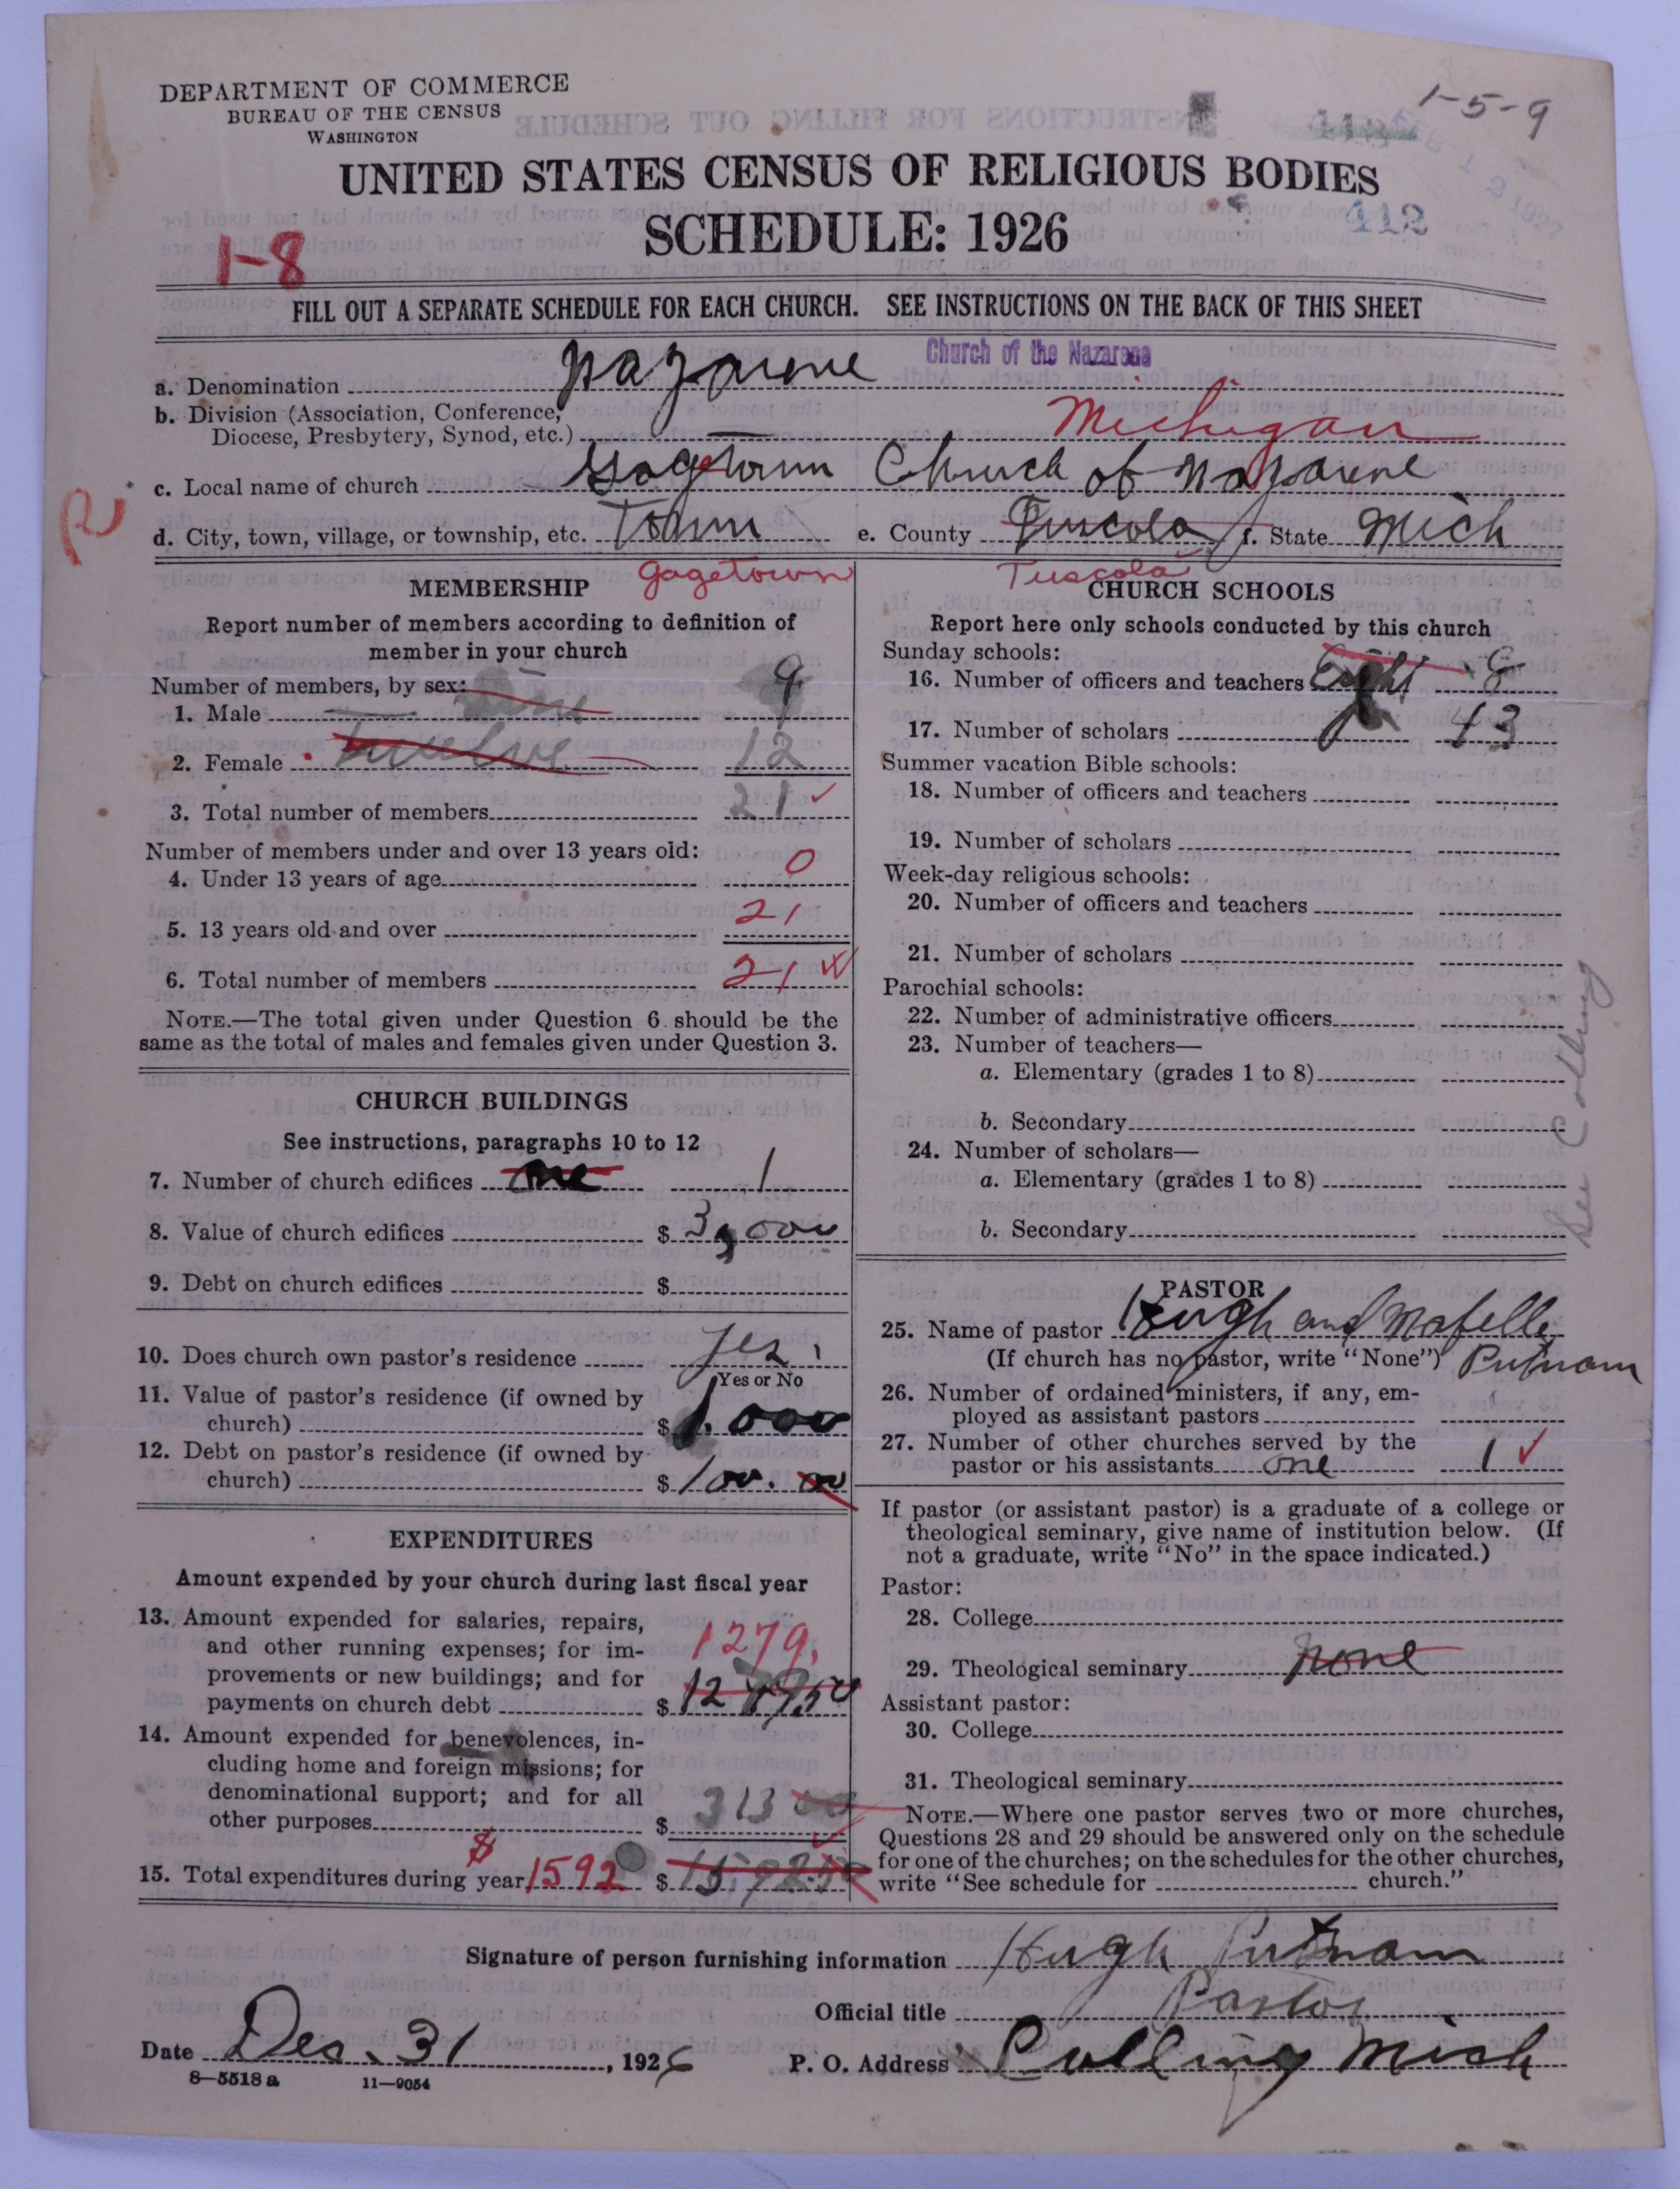 DEPARTMENT OF COMMERCE
BUREAU OF THE CENSUS
WASHINGTON
1-5-9
UNITED STATES CENSUS OF RELIGIOUS BODIES
SCHEDULE: 1926
412
1-8
FILL OUT A SEPARATE SCHEDULE FOR EACH CHURCH. SEE INSTRUCTIONS ON THE BACK OF THIS SHEET
a. Denomination Nazarene Church of the Nazarene
b. Division (Association, Conference, Diocese, Presbytery, Synod, etc.) Michigan
c. Local name of church Gagetown Church of Nazarene
R
d. City, town, village, or township, etc. Town e. County Tuscola f. State Mich
Gagetown Tuscola
MEMBERSHIP
Report number of members according to definition of
member in your church
Number of members, by sex:
1. Male 9
2. Female twelve 12
3. Total number of members 21
Number of members under and over 13 years old:
4. Under 13 years of age 0
5. 13 years old and over 21
6. Total number of members 21
NOTE.—The total given under Question 6 should be the
same as the total of males and females given under Question 3.
CHURCH BUILDINGS
See instructions, paragraphs 10 to 12
7. Number of church edifices one 1
8. Value of church edifices $ 3,000
9. Debt on church edifices $
10. Does church own pastor's residence yes
Yes or No
11. Value of pastor's residence (if owned by
church) $ 1,000
12. Debt on pastor's residence (if owned by
church) $ 100.00
EXPENDITURES
Amount expended by your church during last fiscal year
13. Amount expended for salaries, repairs,
and other running expenses; for im-
1279.
provements or new buildings; and for
payments on church debt $ 1279.50
14. Amount expended for benevolences, in-
cluding home and foreign missions; for
denominational support; and for all
other purposes $ 313
15. Total expenditures during year $ 1592 $
CHURCH SCHOOLS
Report here only schools conducted by this church
Sunday schools:
16. Number of officers and teachers Eight 8
17. Number of scholars 43
Summer vacation Bible schools:
18. Number of officers and teachers
19. Number of scholars
Week-day religious schools:
20. Number of officers and teachers
21. Number of scholars
Parochial schools:
22. Number of administrative officers
23. Number of teachers—
a. Elementary (grades 1 to 8)
b. Secondary
24. Number of scholars—
a. Elementary (grades 1 to 8)
b. Secondary
See Colling
PASTOR
25. Name of pastor Hugh and Mabelle
(If church has no pastor, write "None") Putnam
26. Number of ordained ministers, if any, em-
ployed as assistant pastors
27. Number of other churches served by the
pastor or his assistants one 1
If pastor (or assistant pastor) is a graduate of a college or
theological seminary, give name of institution below. (If
not a graduate, write "No" in the space indicated.)
Pastor:
28. College
29. Theological seminary none
Assistant pastor:
30. College
31. Theological seminary
NOTE.—Where one pastor serves two or more churches,
Questions 28 and 29 should be answered only on the schedule
for one of the churches; on the schedules for the other churches,
write "See schedule for church."
Signature of person furnishing information Hugh Putnam
Official title Pastor
Date Des. 31, 1926 P. O. Address Colling Mich
8—5518 a 11—9054